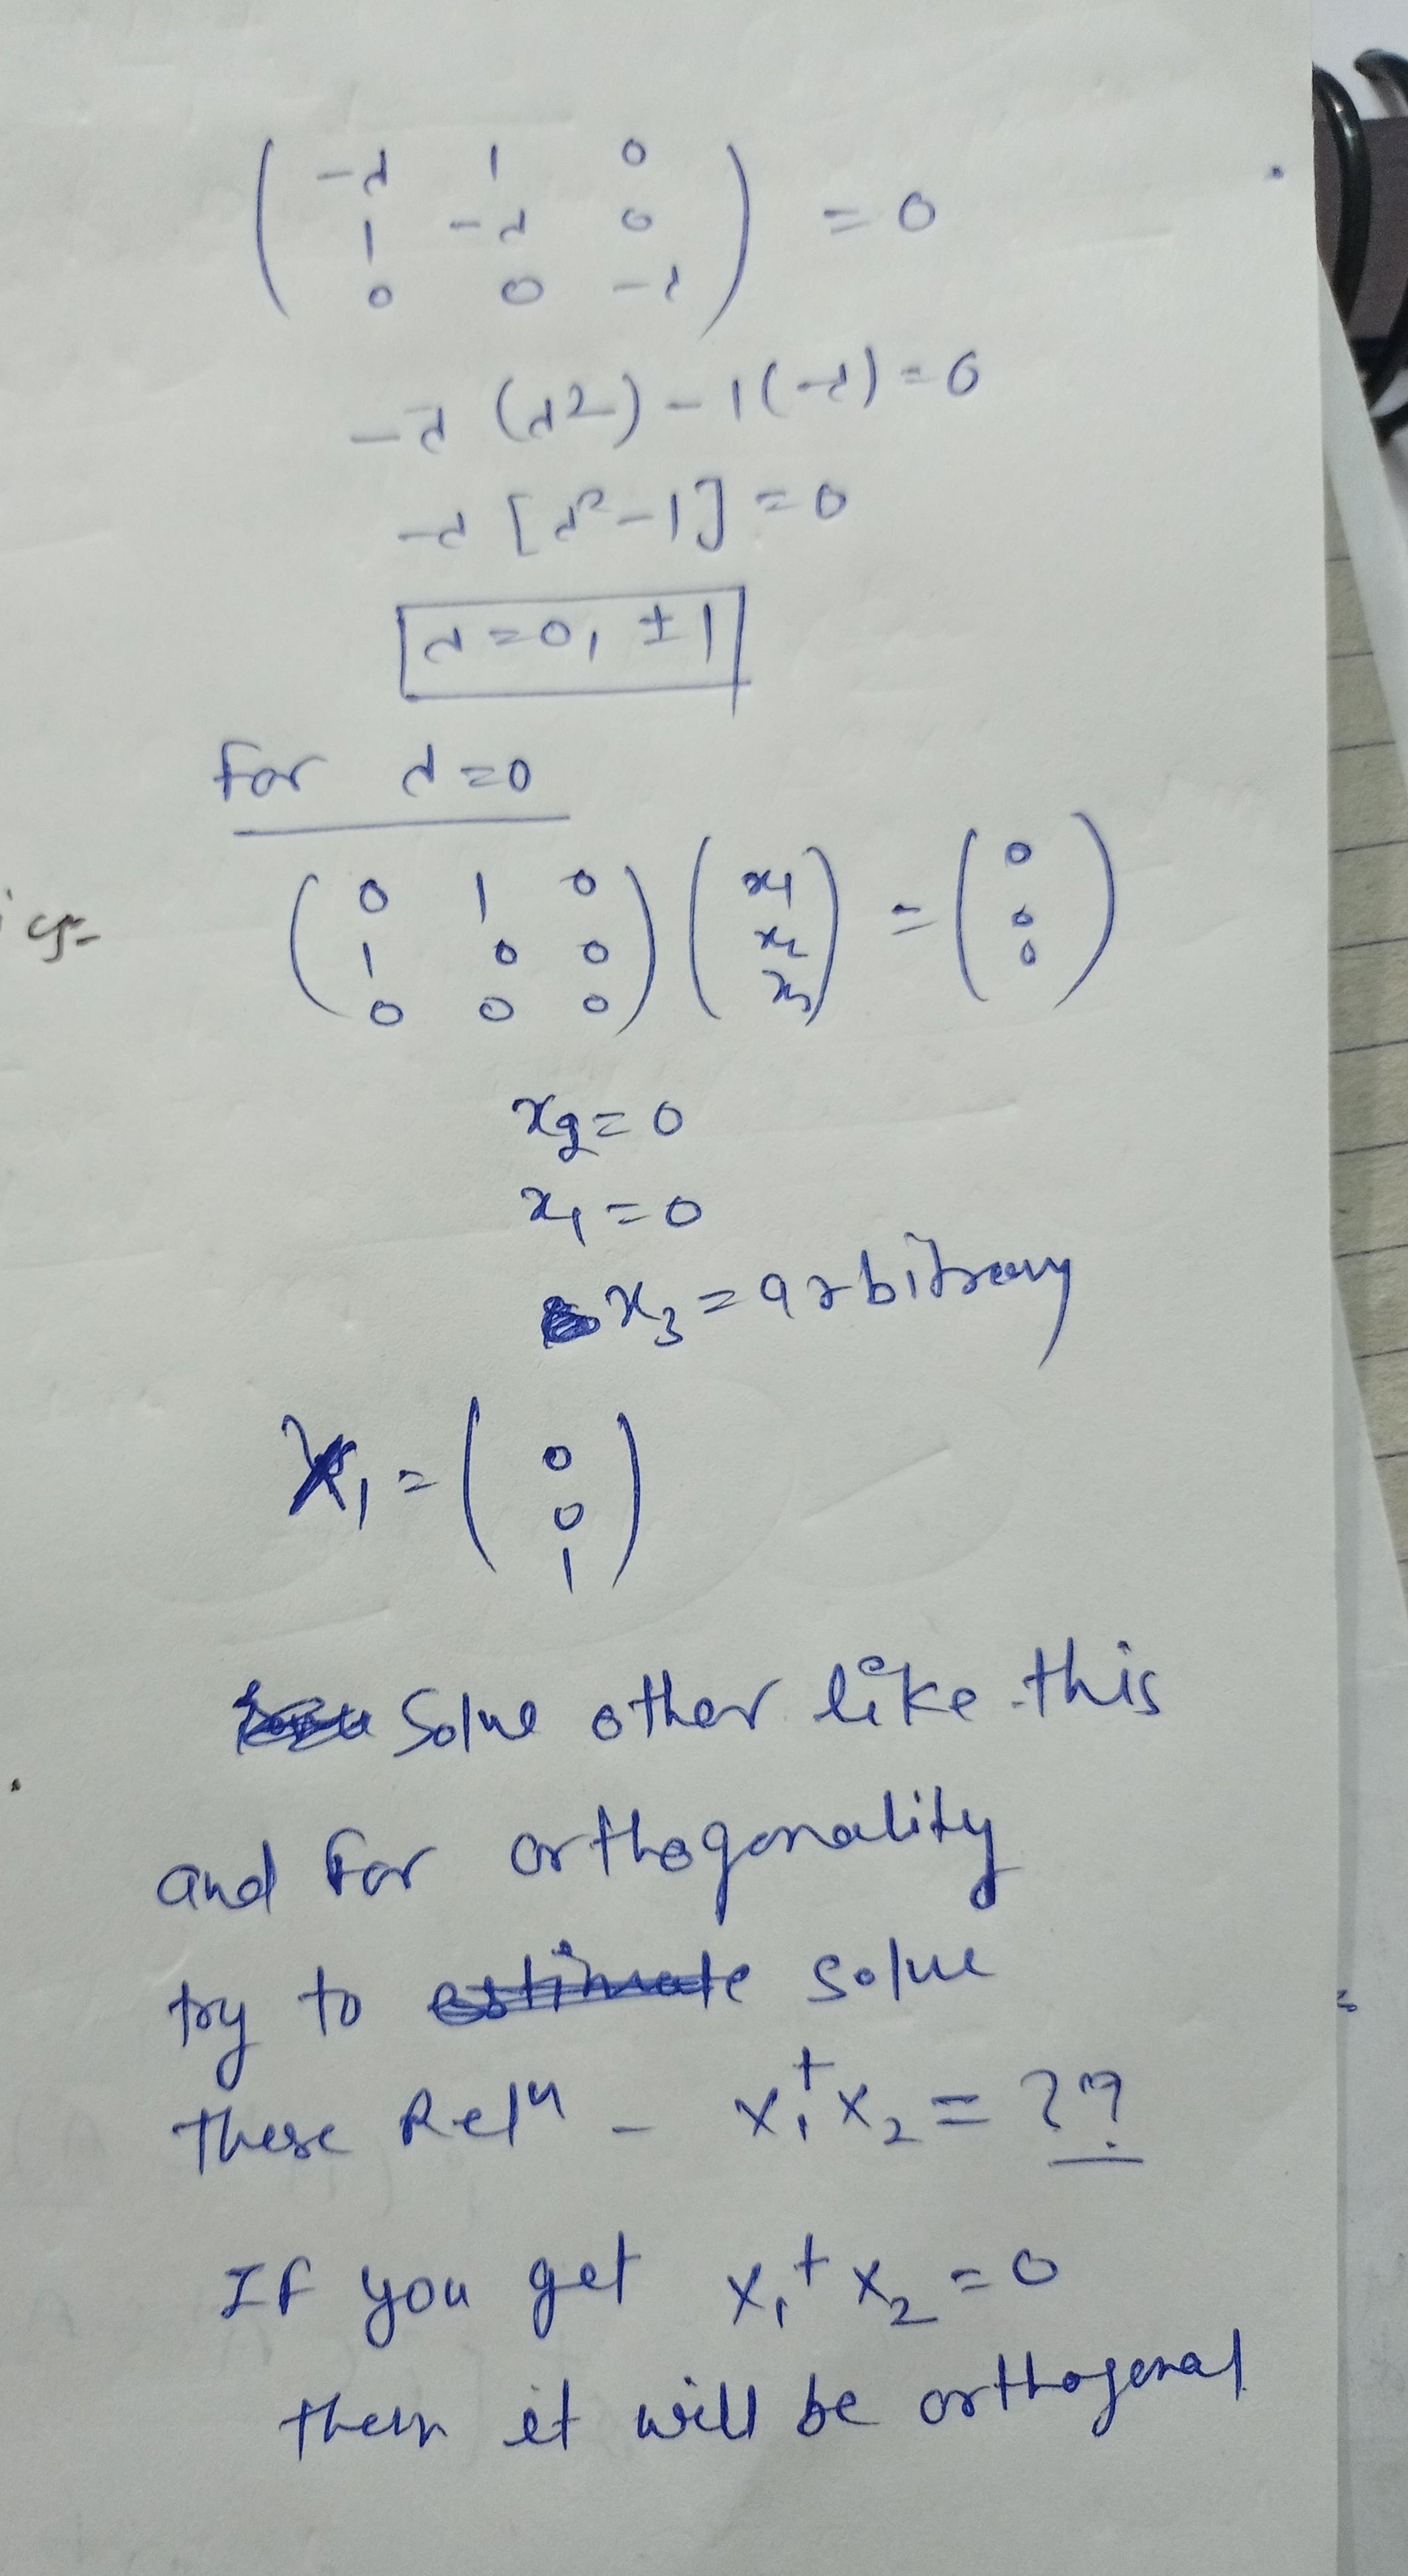 ( -λ 1 0
1 -λ 0
0 0 -λ ) = 0
-λ (λ2) - 1(-λ) = 0
-λ [λ² - 1] = 0
λ = 0, ± 1
For λ = 0
( 0 1 0
1 0 0
0 0 0 ) ( x1
x2
x3 ) = ( 0
0
0 )
x2 = 0
x1 = 0
x3 = arbitrary
X1 = ( 0
0
1 )
Solve other like this
and for orthogonality
try to estimate solve
these Relⁿ - X1† X2 = ??
If you get X1† X2 = 0
then it will be orthogonal